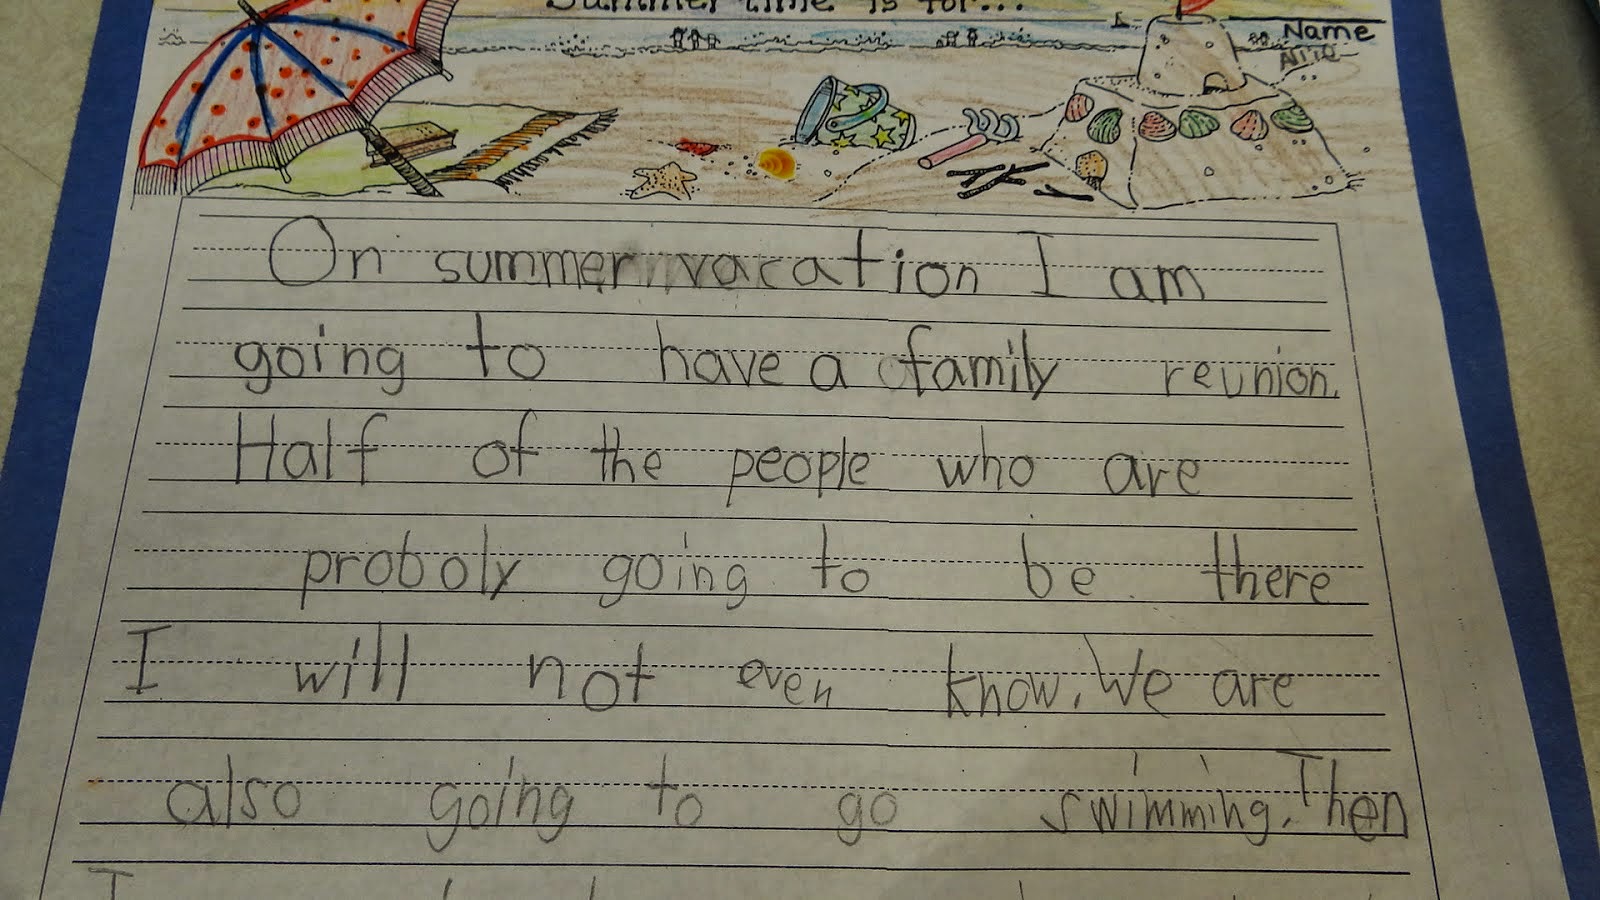 Summer time is for...
Name
On summer vacation I am
going to have a family reunion.
Half of the people who are
proboly going to be there
I will not even know. We are
also going to go swimming. Then
I